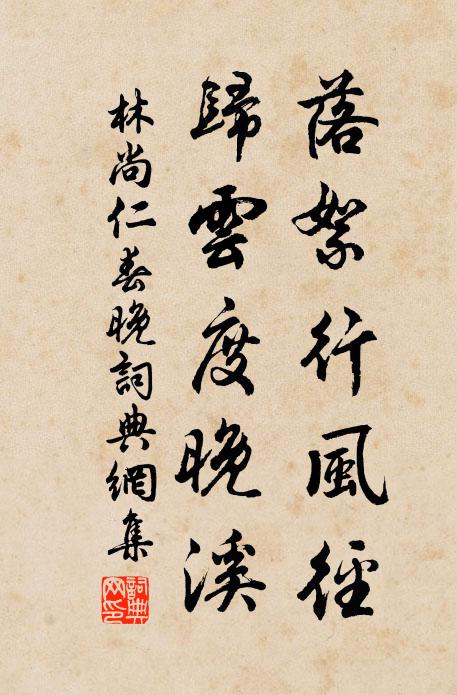 落絮行風徑
歸雲度晚溪
林尚仁春晚詞典網集
詞典網印